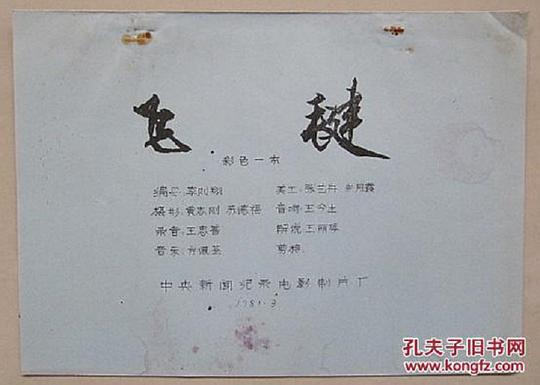 飞 毽
彩色一本
编导:李则翔 美工:张
摄影:黄志刚 苏德福 音响:王今生
录音:王忠善 解说:王丽萍
音乐: 剪接
中央新闻纪录电影制片厂
1981.3
孔夫子旧书网
kongfz.com